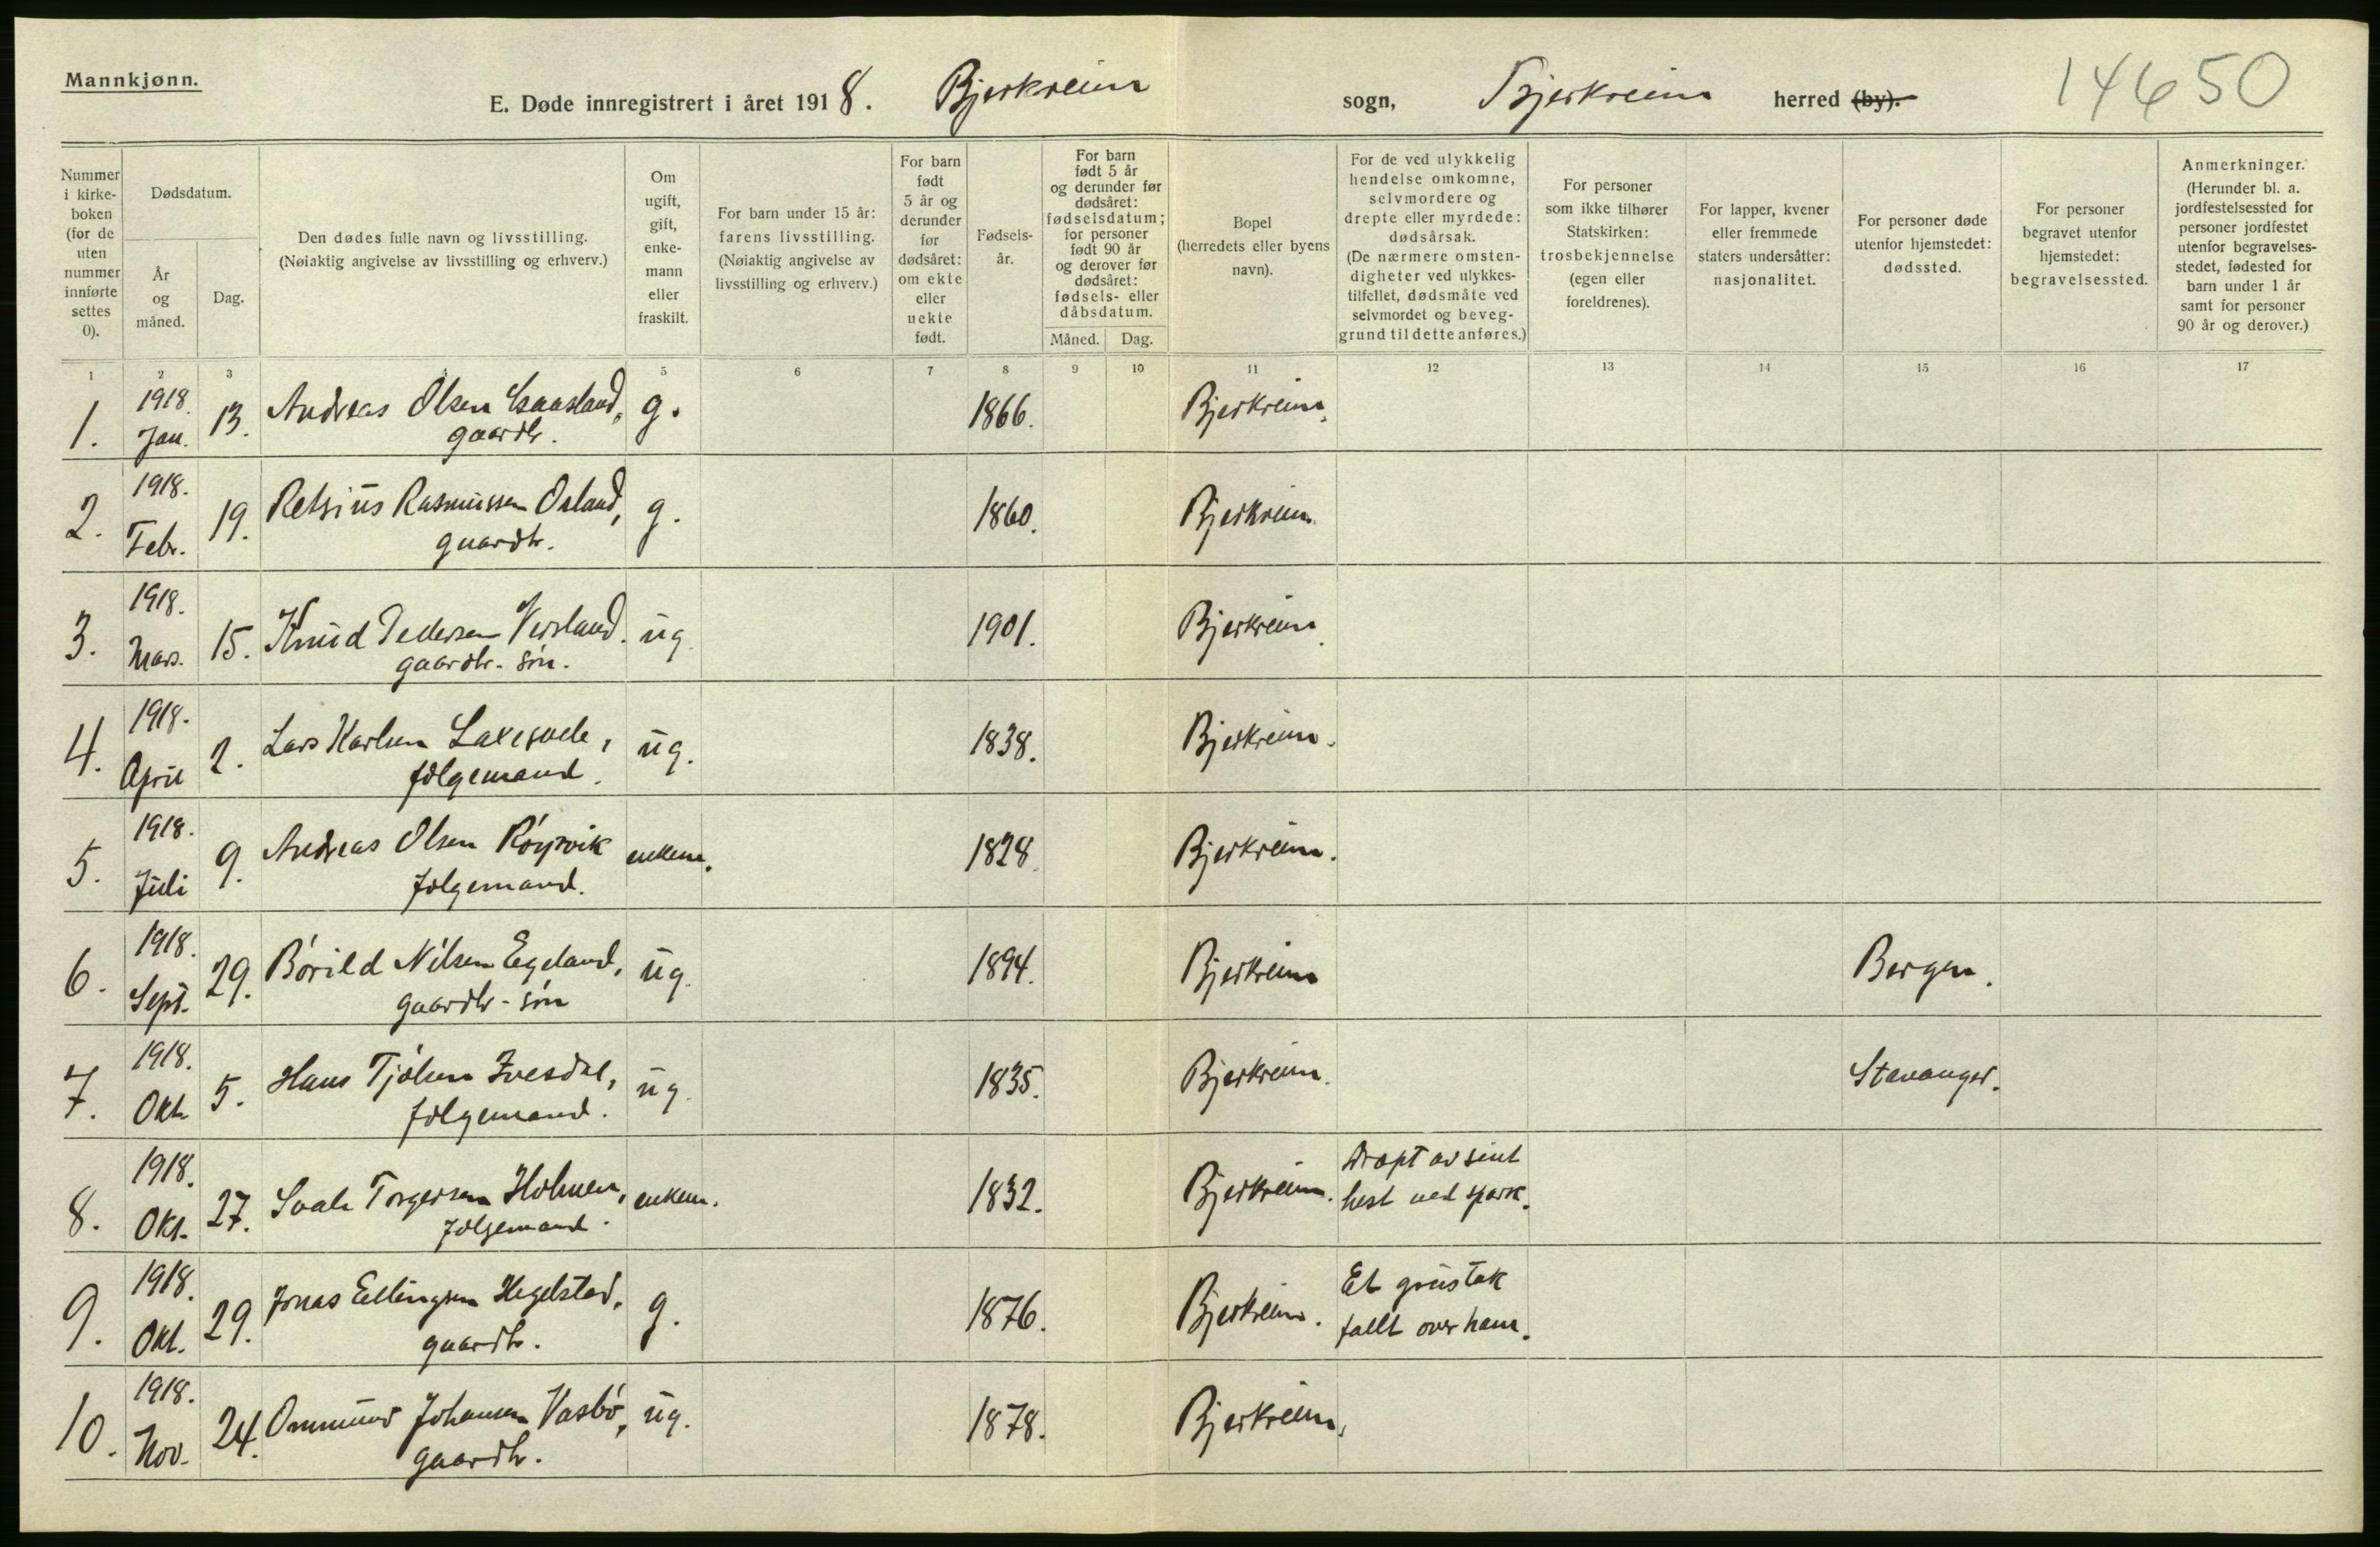 Mannkjønn.
E. Døde innregistrert i året 1918. Bjerkreim sogn, Bjerkreim herred (by).
14650
Nummer i kirke-boken (for de uten nummer innførte settes 0).
Dødsdatum.
År og måned.
Dag.
Den dødes fulle navn og livsstilling.
(Nøiaktig angivelse av livsstilling og erhverv.)
Om ugift, gift, enke-mann eller fraskilt.
For barn under 15 år: farens livsstilling.
(Nøiaktig angivelse av livsstilling og erhverv.)
For barn født 5 år og derunder før dødsåret: om ekte eller uekte født.
Fødsels-år.
For barn født 5 år og derunder før dødsåret: fødselsdatum; for personer født 90 år og derover før dødsåret: fødsels- eller dåbsdatum.
Måned.
Dag.
Bopel
(herredets eller byens navn).
For de ved ulykkelig hendelse omkomne, selvmordere og drepte eller myrdede: dødsårsak.
(De nærmere omsten-digheter ved ulykkes-tilfellet, dødsmåte ved selvmordet og beveg-grund til dette anføres.)
For personer som ikke tilhører Statskirken: trosbekjennelse (egen eller foreldrenes).
For lapper, kvener eller fremmede staters undersåtter: nasjonalitet.
For personer døde utenfor hjemstedet: dødssted.
For personer begravet utenfor hjemstedet: begravelsessted.
Anmerkninger.
(Herunder bl. a. jordfestelsessted for personer jordfestet utenfor begravelses-stedet, fødested for barn under 1 år samt for personer 90 år og derover.)
1 2 3 5 6 7 8 9 10 11 12 13 14 15 16 17
1. 1918. Jan. 13. Andreas Olsen g. 1866. Bjerkreim.
gaardbr.
2. 1918. Febr. 19. Retsius Rasmussen Osland, g. 1860. Bjerkreim
gaardbr.
3. 1918. Mars. 15. Knud Pedersen Versland. ug. 1901. Bjerkreim.
gaardbr. søn.
4. 1918. April 2. Lars Karlsen Laxesvele, ug. 1838. Bjerkreim.
følgemand.
5. 1918. Juli 9. Andreas Olsen Røysvik enkem. 1828. Bjerkreim.
følgemand.
6. 1918. Sept. 29. Børild Nilsen Egeland, ug. 1894. Bjerkreim Bergen.
gaardbr-søn
7. 1918. Okt. 5. Hans Tjølsen Ivesdal, ug. 1835. Bjerkreim. Stavanger.
følgemand.
8. 1918. Okt. 27. Torgersen Holmen, enkem. 1832. Bjerkreim. Dræpt av sint
følgemand. hest ved spark.
9. 1918. Okt. 29. Jonas Ellingsen Hegelstad, g. 1876. Bjerkreim. Et grustak
gaardbr. fallt over ham.
10. 1918. Nov. 24. Ommund Johansen Vasbø, ug. 1878. Bjerkreim.
gaardbr.